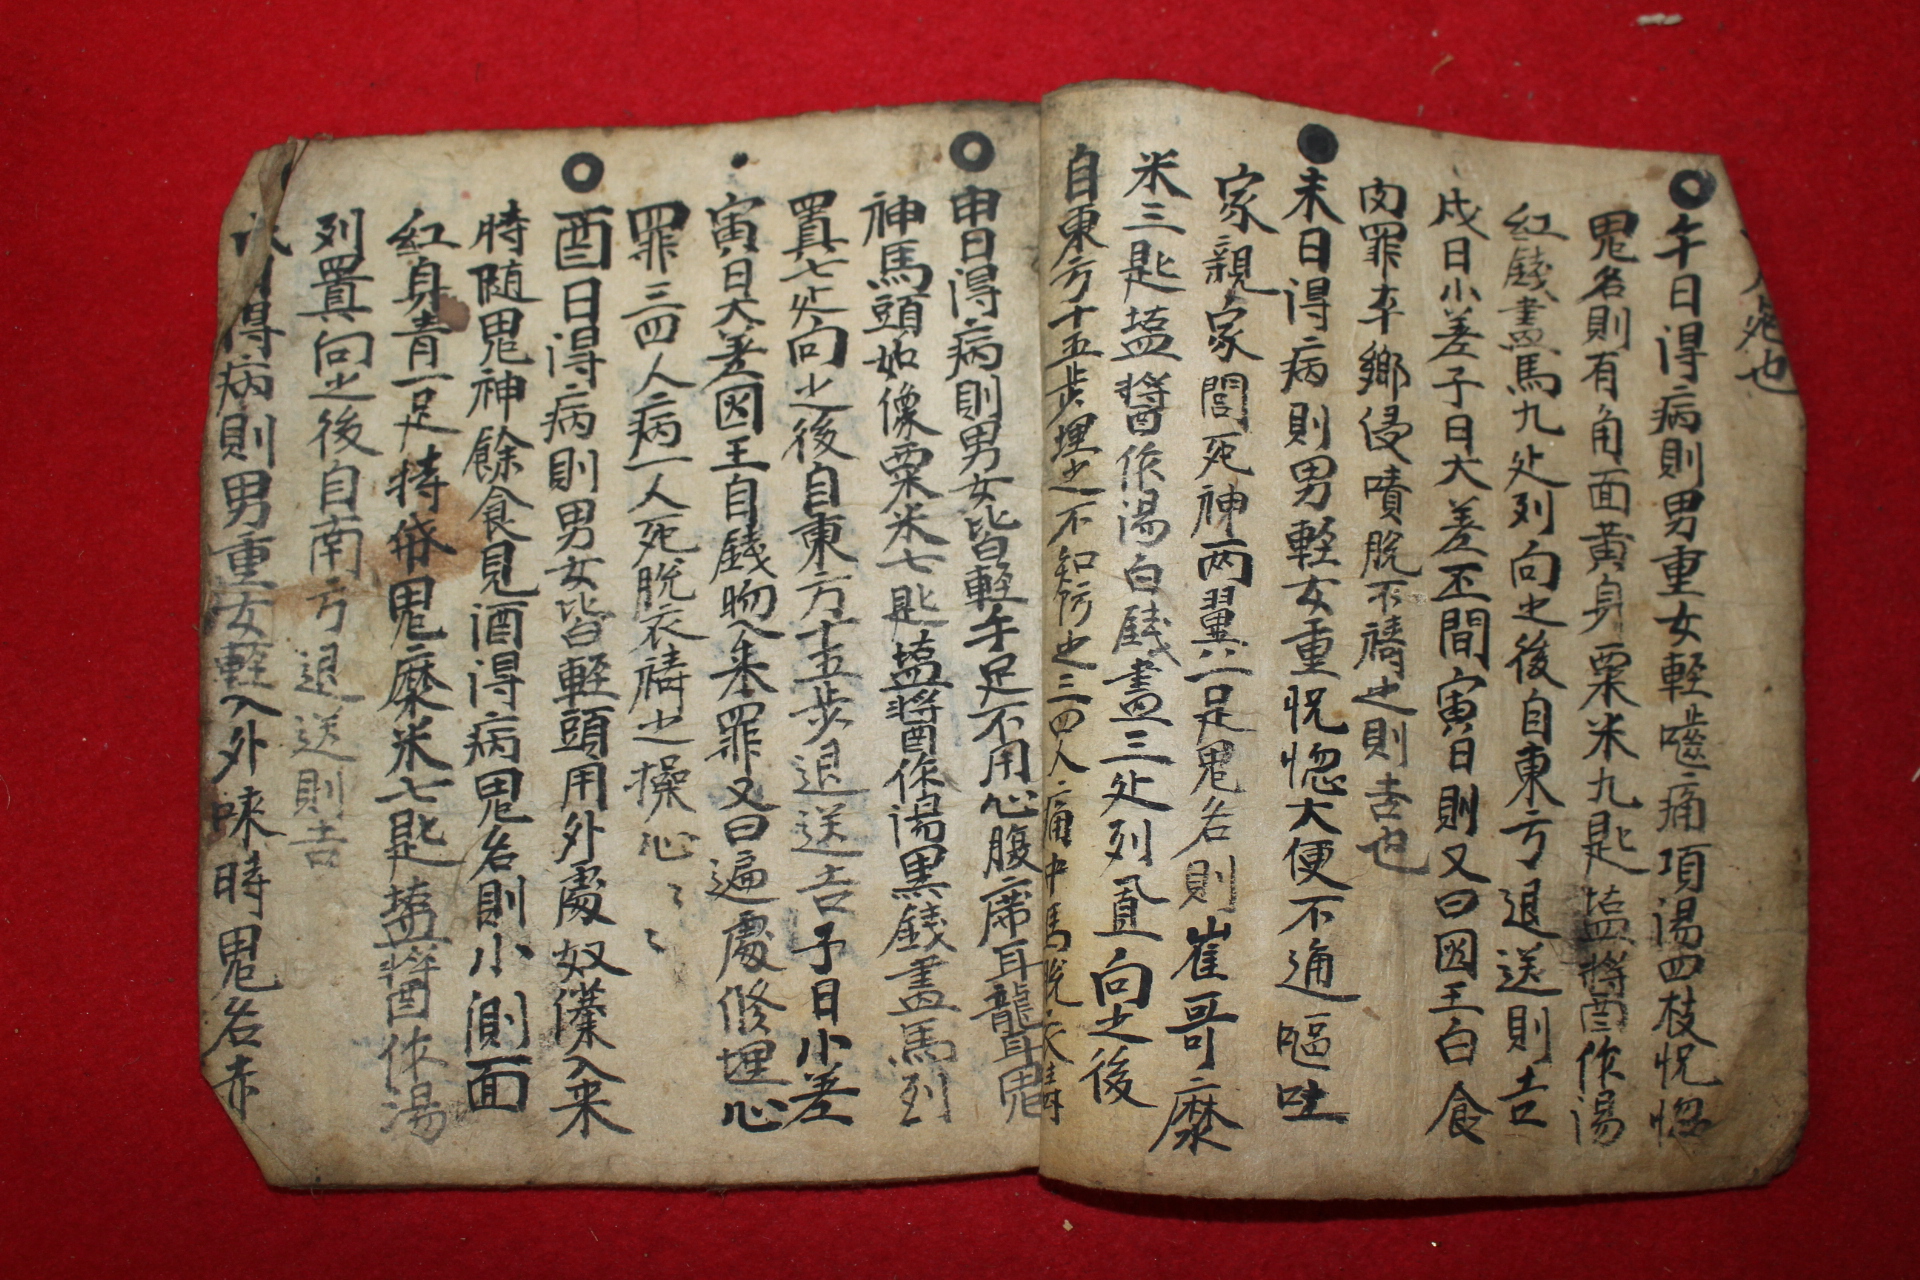 死也
午日得病則男重女輕啮痛項湯四枝怳惚
鬼名則有角面黃身粟米九匙塩醬作湯
紅錢畵馬九处列向之後自東方退送則吉
戌日小差子日大差丕間寅日則又曰囡王白食
肉罪卒鄉侵嘖脫不禱之則吉也
未日得病則男輕女重怳惚大便不通嘔吐
家親家閭死神兩翼二足鬼名則崔哥糜
米三匙塩醬作湯白錢畵三处列置向之後
自東方十五步埋之不知防之三四人痛中馬脫衣
申日得病則男女皆輕手足不用心腹席耳聾耳鬼
神馬頭如像粟米七匙塩醬作湯黑錢畵馬列
置七处向之後自東方十五步退送吉子日小差
寅日大差囡王自錢物入来罪又曰遍處修埋心
罪三四人病一人死脫衣禱之操心ミミ
酉日得病則男女皆輕頭用外處奴僕入来
時随鬼神餘食見酒得病鬼名則小測面
紅身青一足持俗鬼糜米七匙塩醬作湯
列置向之後自南方退送則吉
日得病則男重女輕入外味時鬼名赤